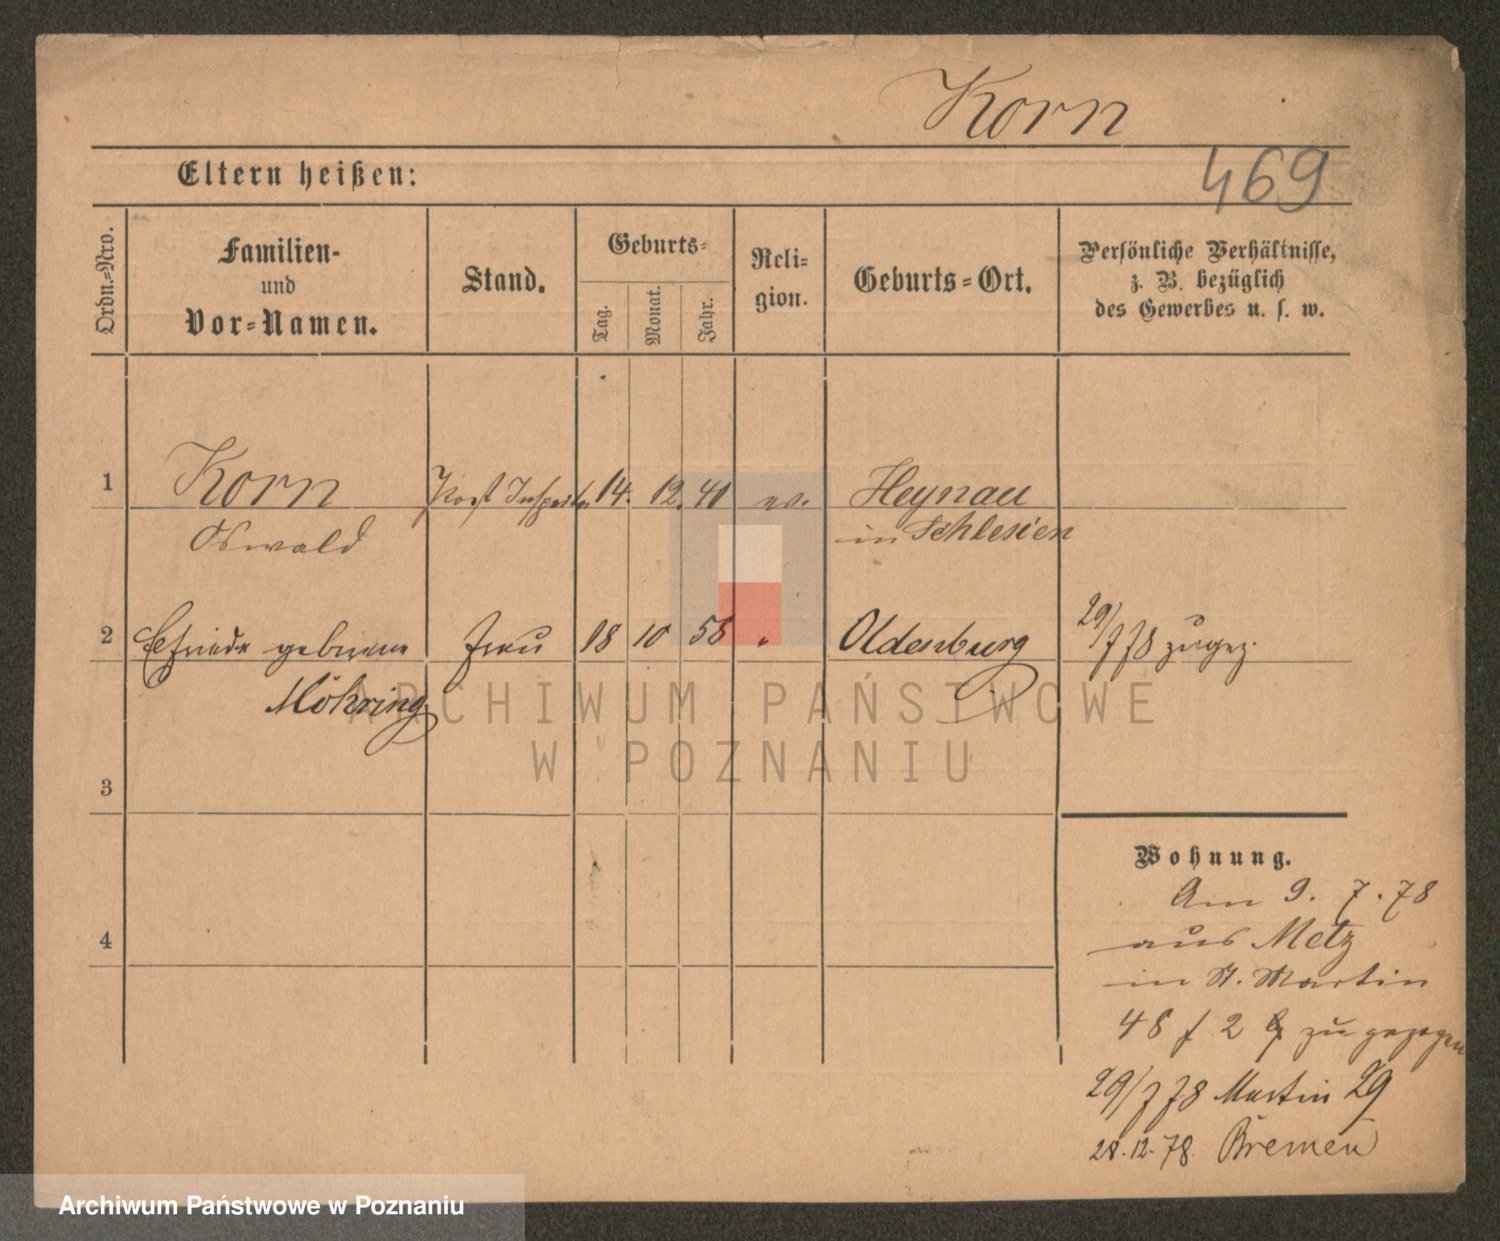 Korn
469
Eltern heißen:
Ordn.-Nro.
Familien-
und
Vor-Namen.
Stand.
Geburts-
Tag.
Monat.
Jahr.
Reli-
gion.
Geburts-Ort.
Persönliche Verhältnisse,
z. B. bezüglich
des Gewerbes u. s. w.
1 Korn Post Inspektor 14. 12. 41 ev. Heynau
Oswald in Schlesien
2 Elfriede geborene Frau 18 10 58 " Oldenburg 29/7 78 zugez.
Möhring
3
4
ARCHIWUM PAŃSTWOWE
W POZNANIU
Wohnung.
Am 9. 7. 78
aus Metz
in St. Martin
48 f 2 zu gezogen
29/7 78 Martin 29
28.12.78 Bremen
Archiwum Państwowe w Poznaniu